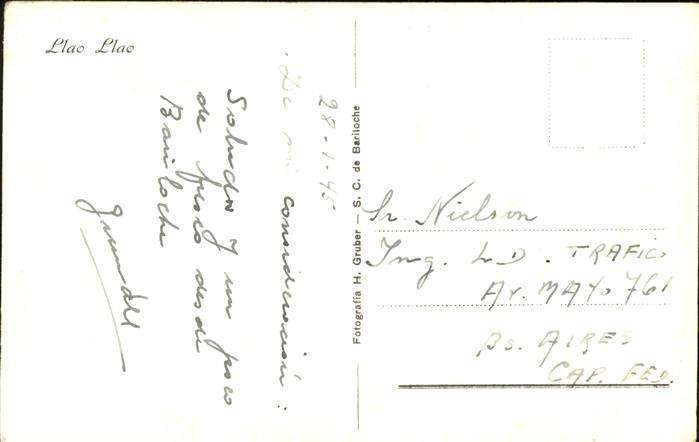 Llao Llao
28-1-45
De mi consideración:
Saludos y un poco
de fresco desde
Bariloche
Fotografía H. Gruber — S. C. de Bariloche
Sr. Nielson
Ing. L D. TRAFICO
AV. MAYO 761
BS. AIRES
CAP. FED.